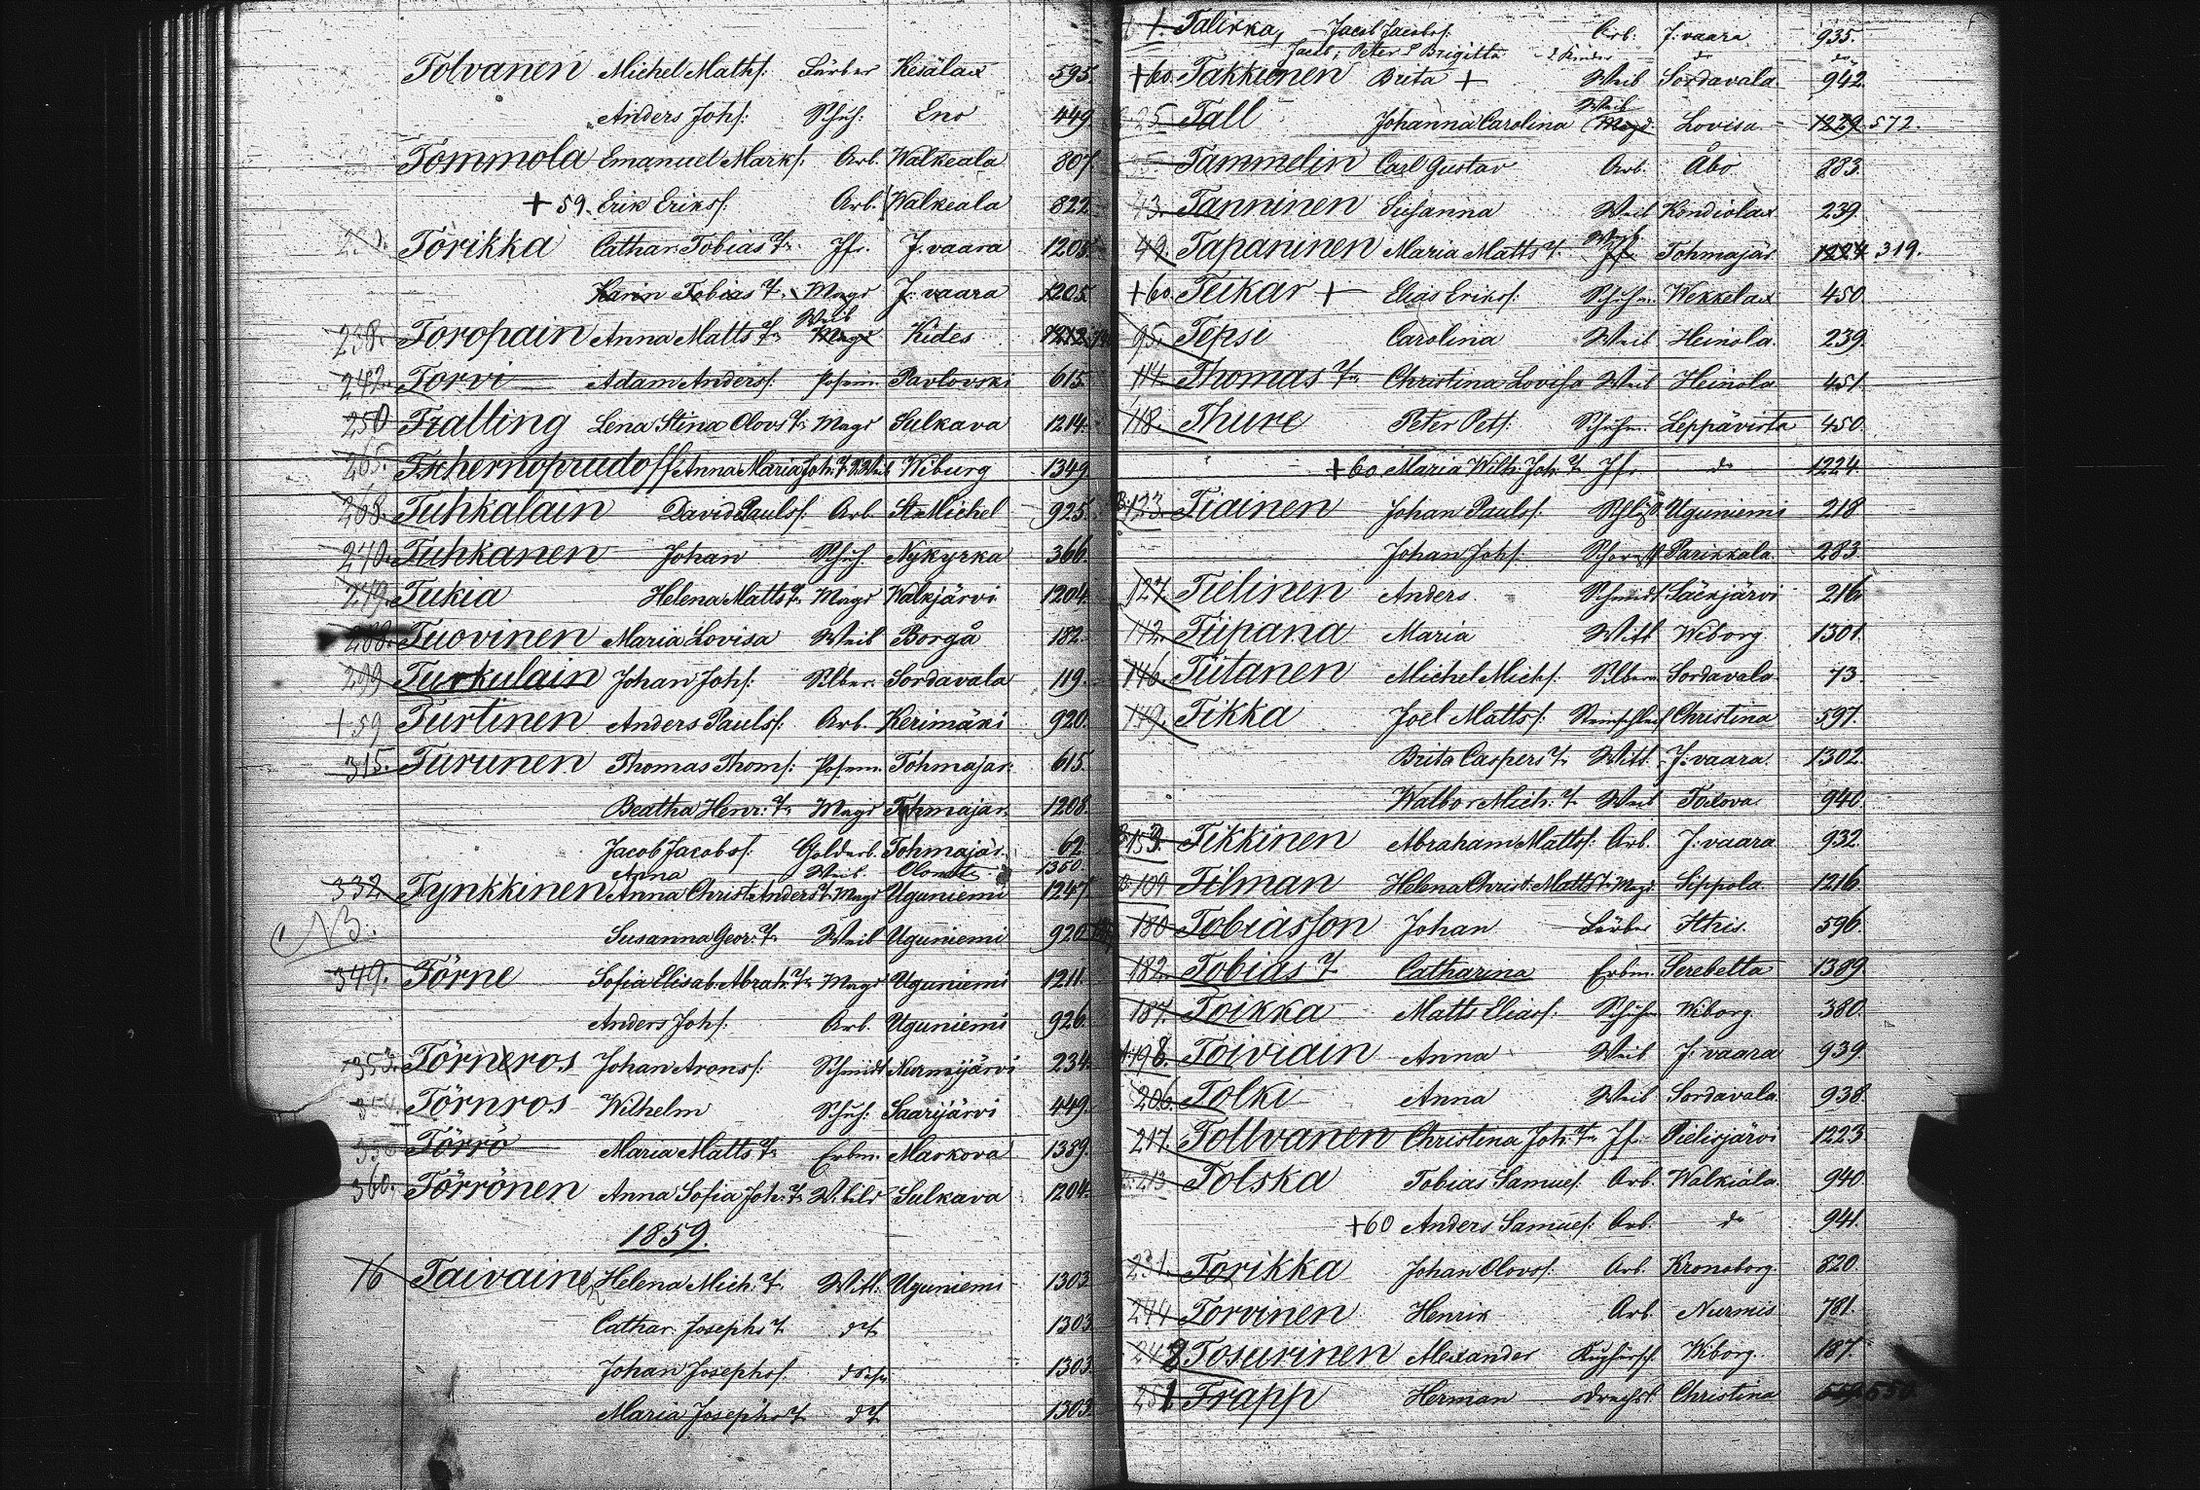 Tolvanen Michel Maths: Färber Kesälax 595.
Anders Johs: Schuh: Eno 449
Tommola Emanuel Marks: Arb. Walkeala 807.
+ 59. Erik Erikss: Arb. Walkeala 822
Torikka Cathar: Tobias Tr. Jfr. J. vaara 1205.
Karin Tobias Tr. Magd J. vaara 1205.
Weib
238. Toropain Anna Matts Tr. Magd Kides 1212
242. Torvi Adam Anderss: Posam. Pavlovski 615.
250 Tratting Lena Stina Olovs Tr. Magd Sulkava 1214.
265. Tschernoprudoff Anna Maria Joh. Tr. Weib Wiburg 1349
268. Tuhkalain David Paulss. Arb. St Michel 925.
270. Tuhkanen Johan Schuh. Nykyrka 366.
279. Tukia Helena Matts Tr. Magd Walkjärvi 1204.
288. Tuovinen Maria Lovisa Weib Borgå 182.
299 Turkulain Johan Johs: Silber. Sordavala 119.
+ 59 Turtinen Anders Paulss: Arb. Kerimäki 920.
315. Turunen Thomas Thoms: Posam. Tohmajar: 615.
Beatha Henr: Tr. Magd Tohmajar. 1208.
Jacob Jacobss: Goldarb. Tohmajär. 62
Anna Weib. 1350.
332 Tynkkinen Anna Christ: Anders Tr. Magd Uguniemi 1247.
NB. Susanna Geor: Tr. Weib Uguniemi 920
349. Törne Sofia Elisab: Abrah: Tr. Magd Uguniemi 1211.
Anders Johs: Arb. Uguniemi 926.
353. Törneros Johan Arons: Schmidt Nurmijärvi 234.
354. Törnros Wilhelm Schuh: Saarijärvi 449.
Törrö Maria Matts Tr. Erbm. Markova 1389.
360. Törrönen Anna Sofia Joh: Tr. Wbild Sulkava 1204.
1859.
16 Taivainen Helena Mich: Tr. Witt: Uguniemi 1303
Cathar: Josephs Tr. dTr 1303
Johan Josephss. dSohn 1303
Maria Josephs Tr. dTr 1303.
1. Talikka, Jacob Jacobs: Arb. J. vaara 935.
Jacob, Peter & Brigitta 2 Kinder do do
+60. Takkunen Brita + Weib Sordavala 942.
Weib
25. Tall Johanna Carolina Magd. Lovisa 1229. 572.
35. Tammelin Carl Gustav Arb. Åbo 883.
43. Tanninen Susanna Weib Kondiolax 239.
Weib
49. Tapaninen Maria Matts Tr. Jfr. Tohmajär 1224 319.
+60 Teikar + Elias Erikss: Schuhm. Wekkelax 450.
95. Tepsi Carolina Weib Heinola 239.
114. Thomas Tr. Christina Lovisa Weib Heinola 451.
118. Thure Peter Pets: Schuhm. Leppävirta 450.
+60 Maria Wilh: Joh: Tr. Jfr. do 1224.
123. Tiainen Johan Paulss: Uguniemi 218
Johan Johs: Parikkala 283.
127. Tielinen Anders Schmidt Säckjärvi 216.
142. Tiipana Maria Witt Wiborg 1301.
146. Tiitanen Michel Michs: Silberm. Sordavala 73.
149. Tikka Joel Matts: Steinschleif Christina 597.
Brita Caspers Tr. Witt. J. vaara 1302.
Walbor Mich: Tr. Weib Toxova 940.
153. Tikkinen Abraham Matts: Arb. J. vaara 932.
Tilman Helena Christ: Matts Tr. Magd. Sippola 1216.
180 Tobiasson Johan Färber Ithis. 596.
182. Tobias Tr. Catharina Erbm. Serebetta 1389.
187. Toikka Matts Eliass: Schuhm Wiborg. 380.
198. Toiviain Anna Weib J. vaara 939.
206. Tolki Anna Weib Sordavala 938.
217. Tollvanen Christina Joh: Tr. Jfr. Pielisjärvi 1223.
213. Tolska Tobias Samuels. Arb. Walkiala 940.
+60 Anders Samuels: Arb. do 941.
231. Torikka Johan Olovs: Arb. Kronoborg 820.
244 Torvinen Henrik Arb. Nurmis 781.
Tosurinen Alexander Wiborg. 187.
Trapp Herman Drechsl. Christina 550.